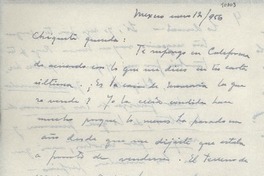 Mexico enero 12/956
Chiquita querida:
Te supongo en California
de acuerdo con lo que me dices en tu carta
última. ¿Es la casa de Monrovia la que
se vende? Yo creía
mucho porque lo menos ha pasado un
año desde que me dijiste que estaba
a punto de venderse. El terreno de